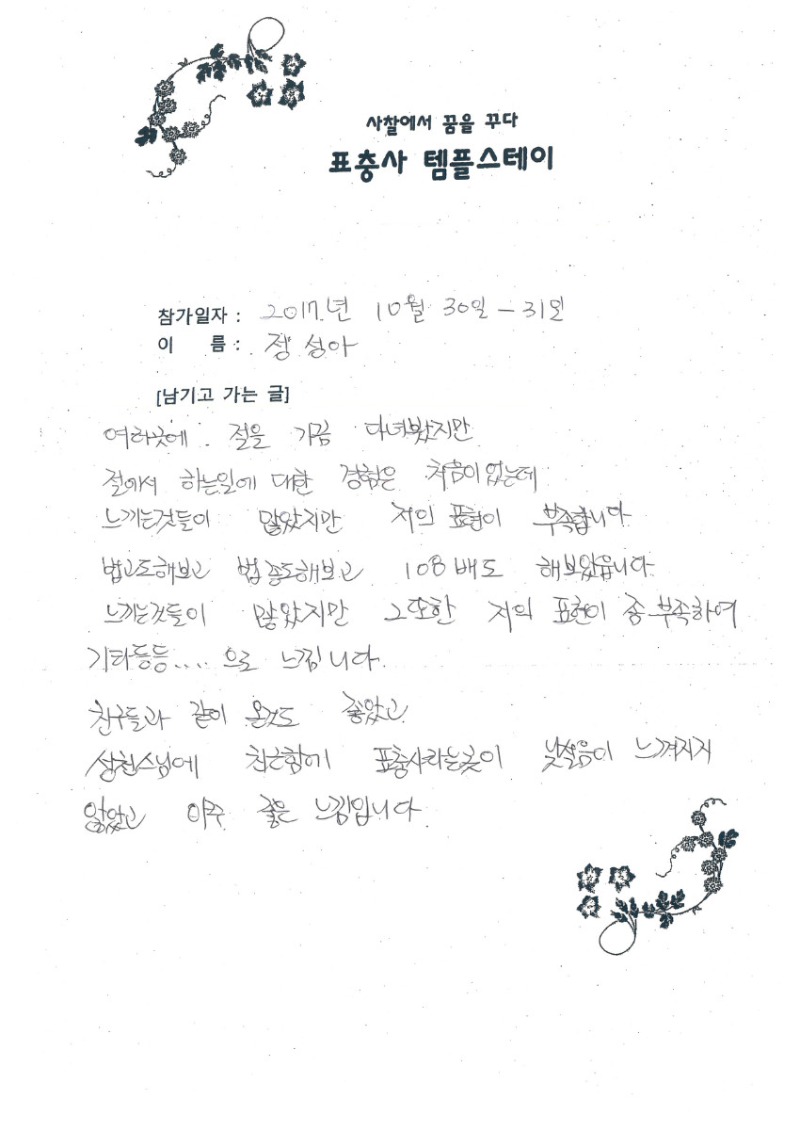 사찰에서 꿈을 꾸다
표충사 템플스테이
참가일자 : 2017.년 10월 30일 - 31일
이 름 : 정성아
[남기고 가는 글]
절을 가끔 다녀봤지만
절에서 하는일에 대한 경험은 처음이었는데
느끼는것들이 많았지만 저의 표현이 부족합니다.
법고도해보고 범종도해보고 108배도 해보았읍니다.
느끼는것들이 많았지만 그또한 저의 표현이 좀 부족하여
기타등등.... 으로 느낌니다.
친구들과 같이 온것도 좋았고
친근함에 표충사라는곳이 낯설음이 느껴지지
않았고 아주 좋은 느낌입니다.